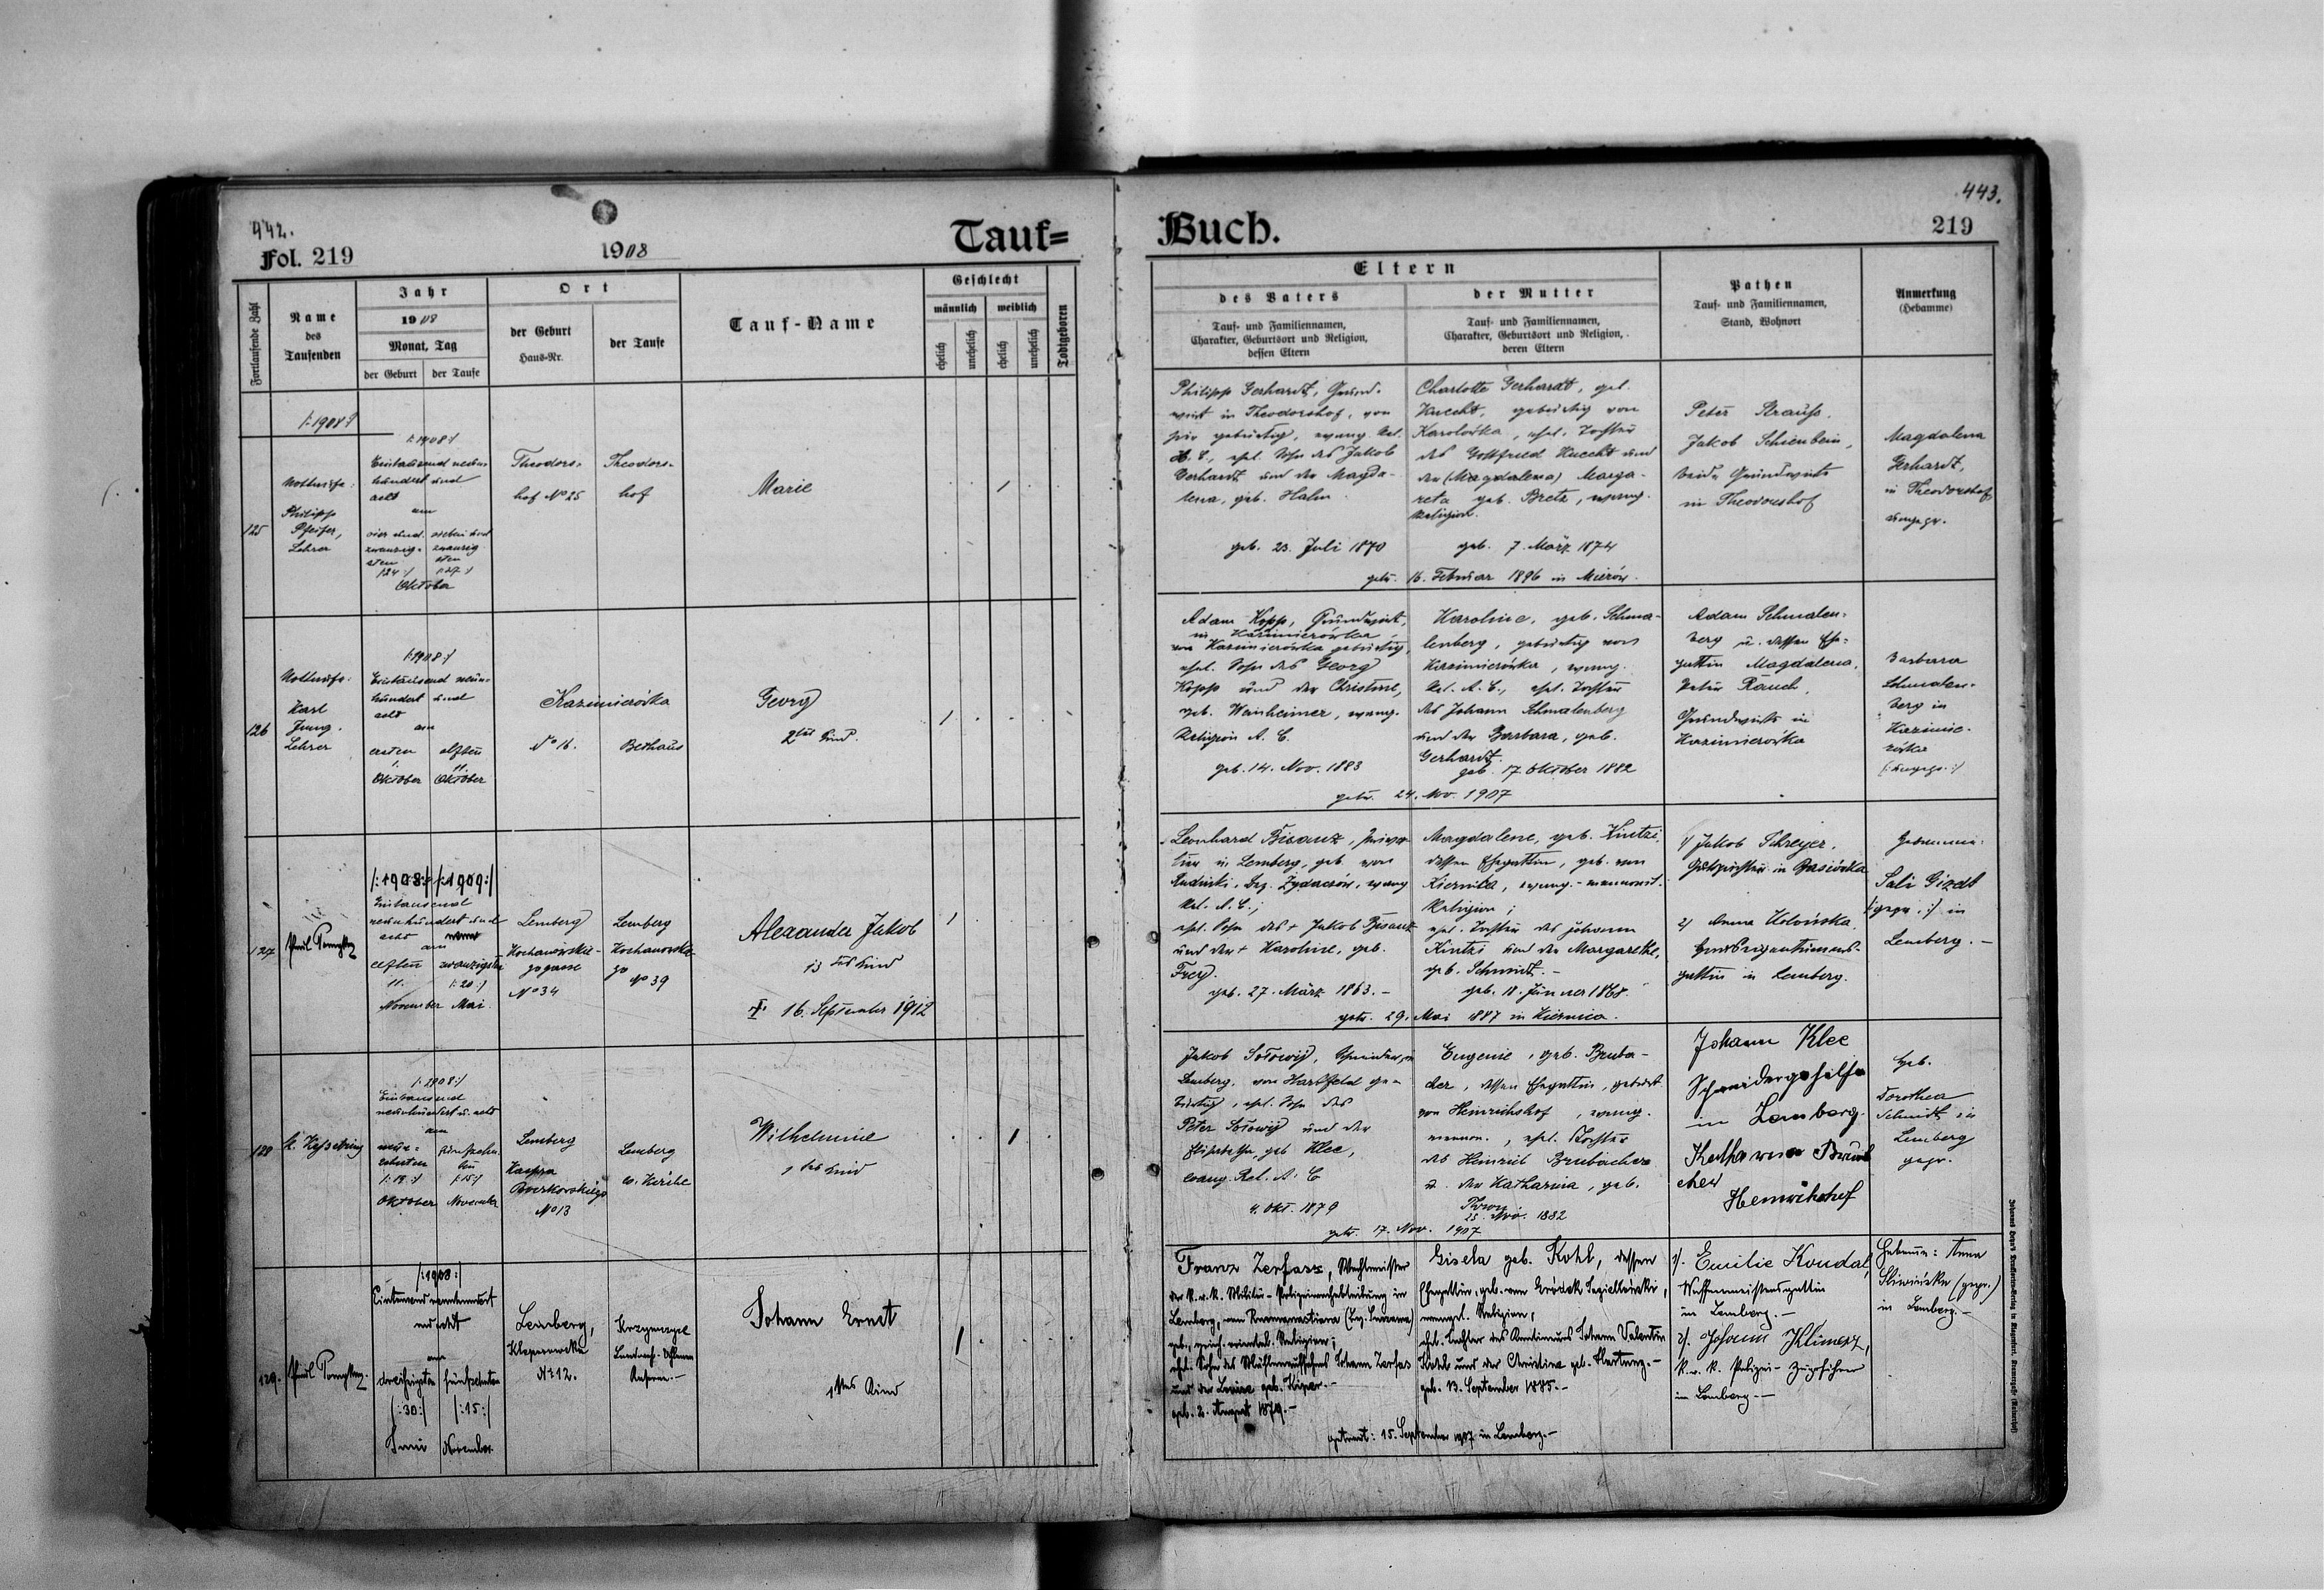 442.
Fol. 219
1908
Tauf=
Fortlaufende Zahl
Name
des
Taufenden
Jahr
1908
Monat, Tag
der Geburt
der Taufe
Ort
der Geburt
Haus-Nr.
der Taufe
Tauf-Name
Geschlecht
männlich
weiblich
ehelich
unehelich
ehelich
unehelich
Todtgeboren
/:1908:/
125
Nothtaufe:
Philipp
Pfeifer,
Lehrer
/:1908:/
Eintausend neun-
hundert und
acht
am
vier und
zwanzig-
sten
/:24:/
sieben und
zwanzig
sten
/:27:/
Oktober
Theodors-
hof No 25
Theodors-
hof
Marie
126
Karl
Jung.
Lehrer
/:1908:/
Eintausend neun-
hundert und
acht
am
ersten
1.
Oktober
elften
11.
Oktober
Kazimierówka
No 16.
Bethaus
Georg
2tes Kind.
127
/:1908:/ /:1909:/
Eintausend
neunhundert und
acht
am
elften
11.
November
zwanzigsten
/:20:/
Mai.
Lemberg
Kochanowskie-
gogasse
No 34
Lemberg
Kochanowskie
go
No 39
Alexander Jakob
13tes Kind
16. September 1912
128
/:1908:/
Eintausend
neunhundert u. acht
am
neun-
zehnten
/:19:/
Oktober
fünfzehn
ten
/:15:/
November
Lemberg
Kaspra
Boczkowskiego
No 13
Lemberg
ev. Kirche
Wilhelmine
1tes Kind
129.
/:1908:/
Eintausend neunhundert
und acht
am
dreißigsten
/:30:/
Juni
fünfzehnten
/:15:/
November
Lemberg,
Kleparowska
No 12.
Landwehr-
Kaserne.-
Johann Ernst
1tes Kind
Buch.
443.
219
Eltern
des Vaters
Tauf- und Familiennamen,
Charakter, Geburtsort und Religion,
dessen Eltern
der Mutter
Tauf- und Familiennamen,
Charakter, Geburtsort und Religion,
deren Eltern
Pathen
Tauf- und Familiennamen,
Stand, Wohnort
Anmerkung
(Hebamme)
Philipp Gerhardt, Grund-
wirt in Theodorshof, von
hier gebürtig, evang. Rel.
A. C., ehel. Sohn des Jakob
Gerhardt und der Magda-
lena, geb. Hahn.
geb. 23. Juli 1870
Charlotte Gerhardt, geb.
Knecht, gebürtig von
Karolówka, ehel. Tochter
des Gottfried Knecht und
der (Magdalena) Marga-
reta geb. Bretz, evang.
Religion.
geb. 7. März 1874
getr. 16. Februar 1896 in Mierów.
Peter Strauß.
Jakob Schienbein,
beide Grundwirte
in Theodorshof
Magdalena
Gerhardt,
in Theodorshof
ungepr.
Adam Kopp, Grundwirt,
in Kazimierówka
von Kazimierówka gebürtig,
ehel. Sohn des Georg
Kopp und der Christine,
geb. Weinheimer, evang.
Religion A. C.
geb. 14. Nov. 1883
Karoline, geb. Schma-
lenberg, gebürtig von
Kazimierówka, evang.
Rel. A. C., ehel. Tochter
des Johann Schmalenberg
und der Barbara, geb.
Gerhardt.
geb. 17. Oktober 1882
getr. 24. Nov. 1907
Adam Schmalen-
berg u. dessen Ehe-
gattin Magdalena,
Peter Rauch.
Grundwirte in
Kazimierówka
Barbara
Schmalen-
berg in
Kazimie-
rówka
(:ungepr.:)
Leonhard Bisanz,
in Lemberg, geb. von
Rudniki, Bez. Zydaczów, evang
Rel. A. C.;
ehel. Sohn des + Jakob Bisanz
und der + Karoline, geb.
Frey.
geb. 27. März 1863.-
Magdalene, geb. Kintzi,
dessen Ehegattin, geb. von
Kiernica, evang.-mennonit.
Religion;
ehel. Tochter des Johann
Kintzi und der Margarethe,
geb. Schmidt.-
geb. 18. Jänner 1868.
getr. 29. Mai 1887 in Kiernica.
1) Jakob Schreyer,
Gutspächter in Basiówka
2) Anna
gattin in Lemberg.
Hebamme:
Sali Gizelt
(:gepr.:) in
Lemberg.-
Jakob Sołowij, in
Lemberg, von Hartfeld ge-
bürtig, ehel. Sohn des
Peter Sołowij und der
Elisabetha, geb. Klee,
evang. Rel. A. C
4. Okt. 1879
Eugenie, geb. Bruba-
cher, dessen Ehegattin, gebürt.
von Heinrichshof, evang.
mennon., ehel. Tochter
des Heinrich Brubacher
u. der Katharina, geb.
25. Nov. 1882
getr. 17. Nov. 1907
Johann Klee
Schneidergehilfe
in Lemberg.
Katharina Bruba
cher
Heinrichshof
Heb.
Dorothea
Schmidt in
Lemberg
gepr.
Franz Zerfass, Wachtmeister
der k. u. k. Militär-Polizeiwachabteilung in
Lemberg, von
geb., griech.-oriental. Religion;
ehel. Sohn des Johann Zerfass
und der Louise geb. Kiper.-
geb. 2. August 1879.-
Gisela geb. Kohl, dessen
Ehegattin, geb. von Gródek Jagielloński,
evangel. Religion,
ehel. Tochter des Johann Valentin
Kohl und der Christine geb. Hartung.-
geb. 13. September 1885.-
getraut: 15. September 1907 in Lemberg.-
1). Emilie Koudal,
Waffenmeistersgattin
in Lemberg.-
2). Johann Klimesz,
k. u. k. Polizei-Zugsführer
in Lemberg.-
Hebamme: Anna
Śliwińska (gepr.)
in Lemberg.-